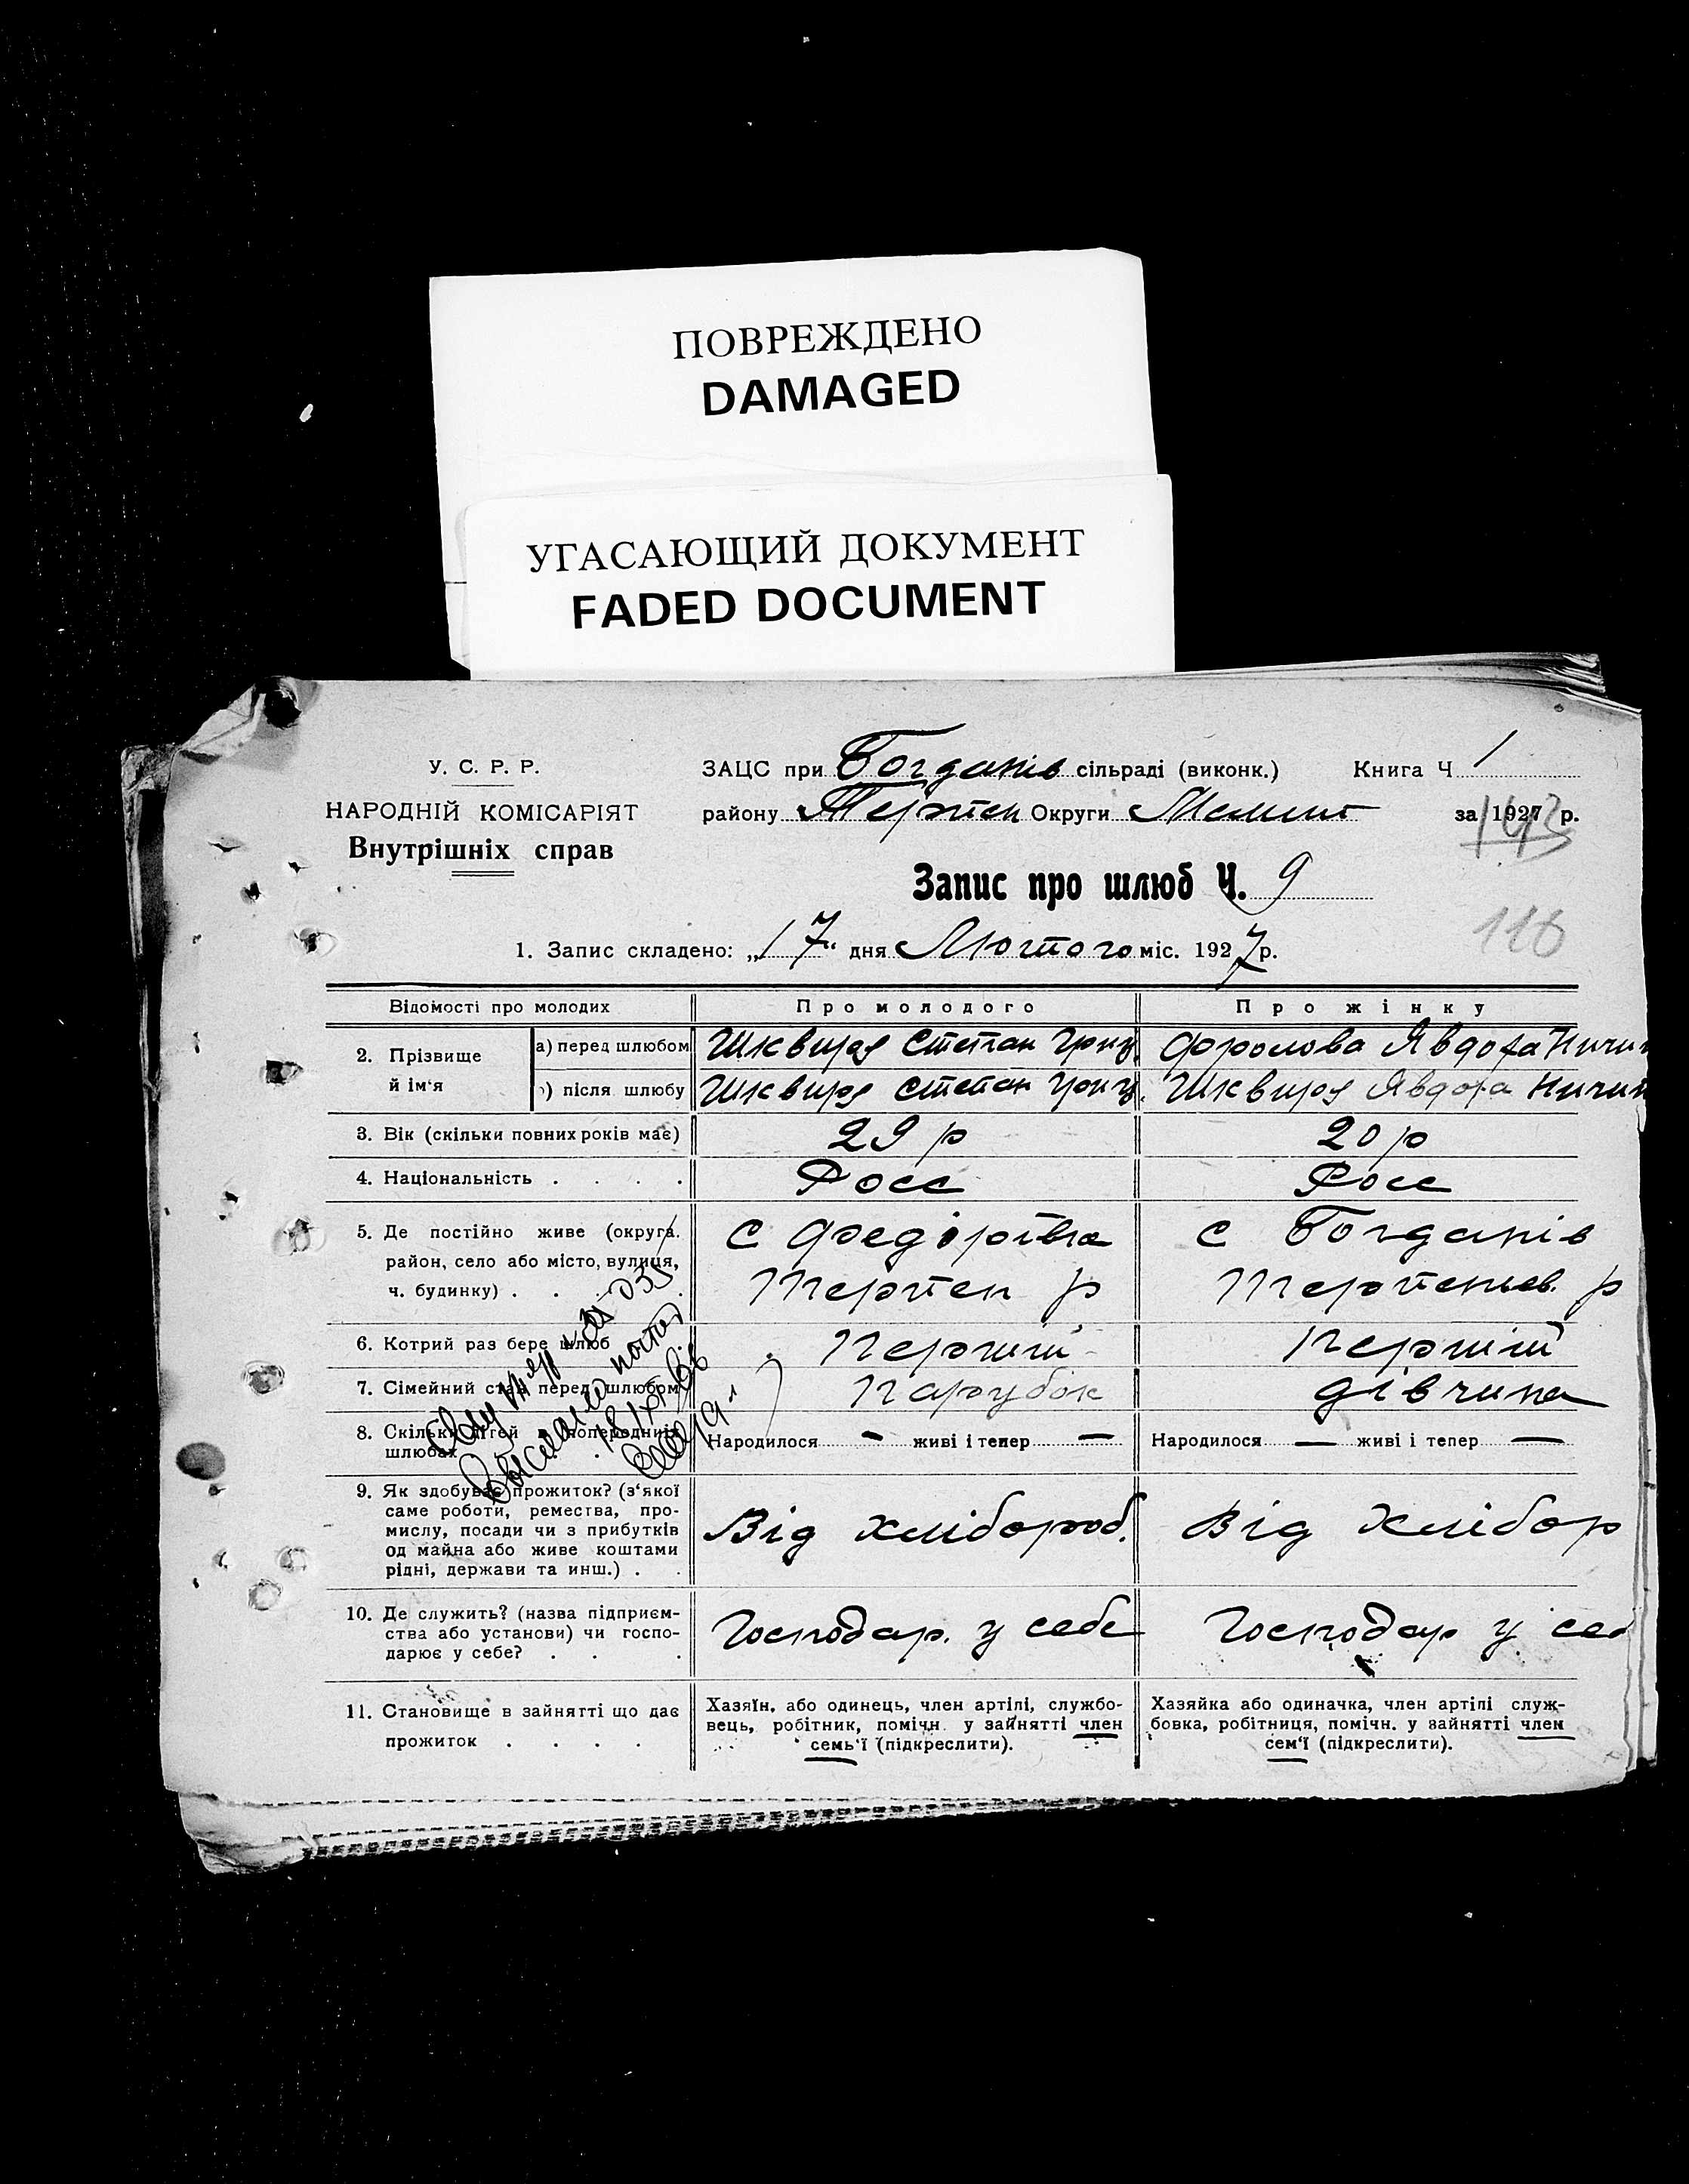 ПОВРЕЖДЕНО
DAMAGED
УГАСАЮЩИЙ ДОКУМЕНТ
FADED DOCUMENT
У. С. Р. Р.
НАРОДНІЙ КОМІСАРІЯТ
Внутрішніх справ
ЗАЦС при Богданів сільраді (виконк.) Книга Ч 1
району Терпен Округи Мелит за 1927 р.
143
Запис про шлюб Ч. 9
116
1. Запис складено: „17" дня Лютого міс. 1927 р.
Відомості про молодих Про молодого Про жінку
2. Прізвище й ім‘я
а) перед шлюбом Шквиря Степан Гриц. Фролова Явдоха Ничип
б) після шлюбу Шквиря Степан Гриц. Шквиря Явдоха Ничип
3. Вік (скільки повних років має) 29 р 20 р
4. Національність . . . . Росс Росс
5. Де постійно живе (округа, С Федорівка С Богданів
район, село або місто, вулиця, Терпен р Терпеньев. р
ч. будинку) . . . .
6. Котрий раз бере шлюб Перший Перший
7. Сімейний стан перед шлюбом Парубок дівчина
8. Скільки дітей в попередніх Народилося — живі і тепер — Народилося — живі і тепер —
шлюбах
18/IX-66
9. Як здобуває прожиток? (з‘якої
саме роботи, ремества, про-
мислу, посади чи з прибутків Від хлібороб. Від хлібор
од майна або живе коштами
рідні, держави та инш.) . .
10. Де служить? (назва підприєм-
ства або установи) чи госпо- Господар. у себе Господар у себ
дарює у себе? . . .
11. Становище в зайнятті що дає Хазяїн, або одинець, член артілі, службо- Хазяйка або одиначка, член артілі служ-
прожиток . . . . вець, робітник, помічн. у зайнятті член бовка, робітниця, помічн. у зайнятті член
семь‘ї (підкреслити). сем‘ї (підкреслити).